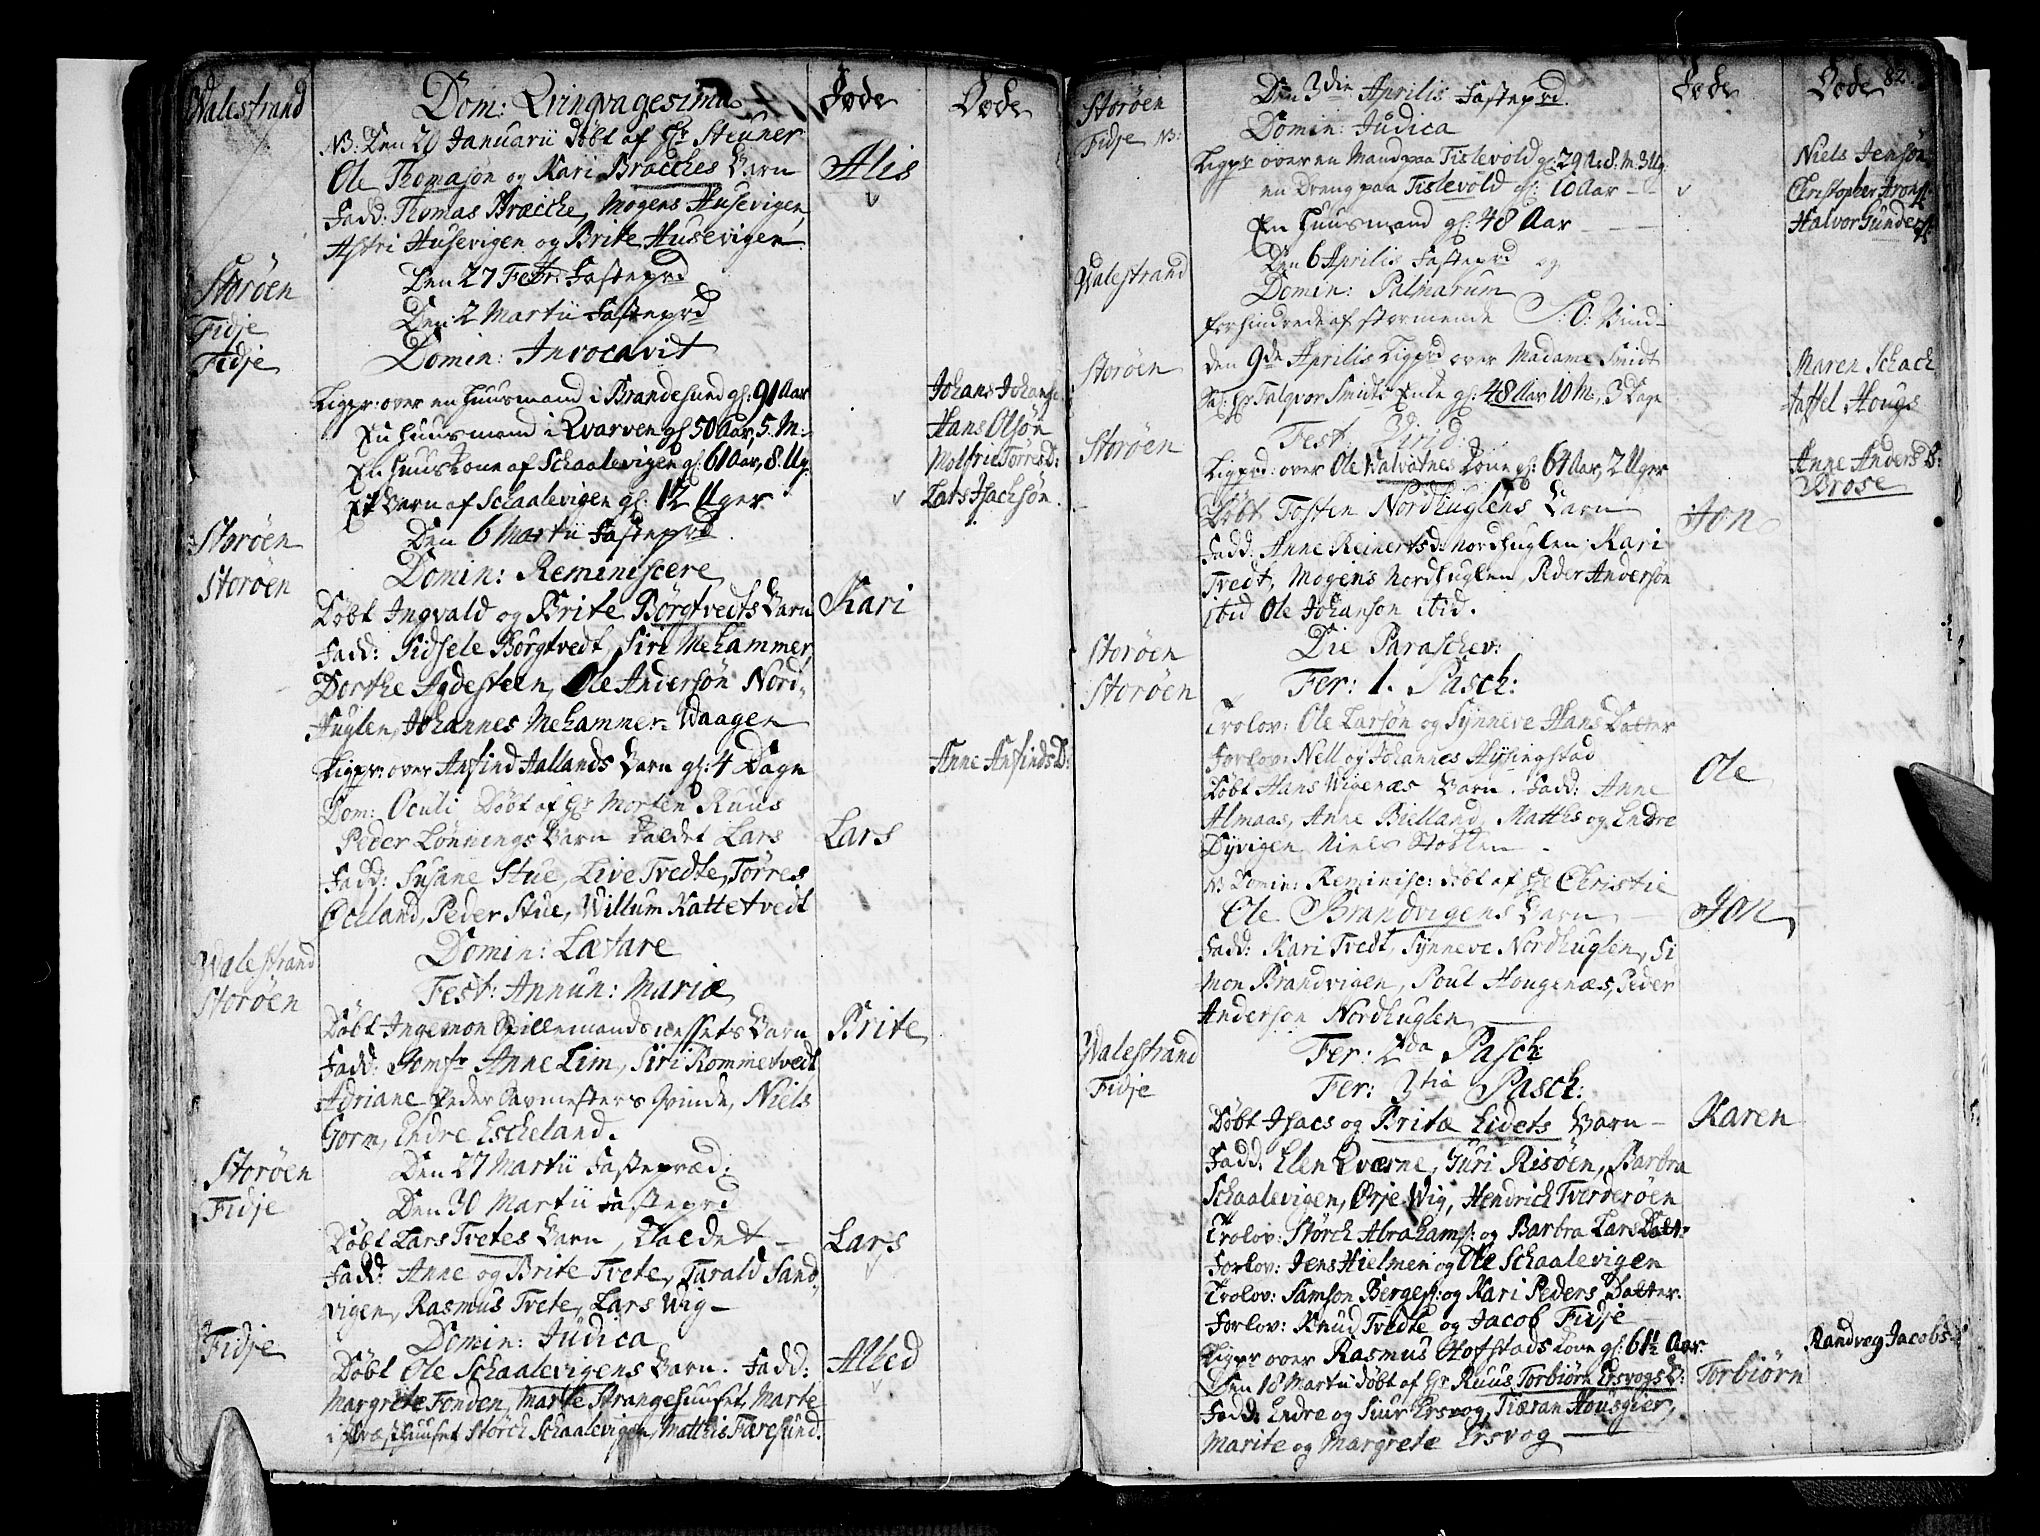 Walestrand Dom: Qvinqvagesima Føde Døde
NB: Den 20 Januarii døbt af Hr Steuner
Ole Thomasøn og Kari Bracches Barn Alis
Fadd: Thomas Bracche, Mogens Husevigen,
Astri Husevigen og Brite Husevigen
Storøen Den 27 Febr: Fasteprd
Fidje Den 2 Martii Fasteprd
Fidje Domin: Invocavit
Ligpr: over en Huusmand i Brandesund gl: 91 Aar Johans Johans:
En Huusmand i Qvarven gl 50 Aar, 5. M: Hans Olsøn
En Huuskone af Schaalevigen gl: 61 Aar, 8. Ug: Molfrie TørresD:
Et Barn af Schaalevigen gl: 12 Uger Lars Isachsøn.
Storøen Den 6 Martii Fasteprd
Storøen Domin: Reminiscere
Døbt Ingvald og Brite Børgtvedts Barn Kari
Fadd: Sidsele Børgtvedt, Siri Mehammer,
Dorthe Agdesteen, Ole Andersøn Nord-
Huglen, Johannes Mehammer-Waagen
Ligpr: over Ansind Aallands Barn gl: 4 Dage Anne AnsindsD:
Dom: Oculi Døbt af Hr Morten Ruus
Peder Lønnings Barn kaldet Lars Lars
Fadd: Susane Stue, Live Tvedte, Tørres
Øceland, Peder Stue, Willum Kattetvedt
Walestrand Domin: Lætare
Storøen Fest: Annun: Mariæ
Døbt Ingemon Spillemandsnessets Barn Brite
Fadd: Jomfr Anne Lim, Siri Rommetvedt
Adriane Peder Havmesters Qvinde, Niels
Gorm, Endre Escheland.
Storøen Den 27 Martii Fastepræd:
Fidje Den 30 Martii Fasteprd
Døbt Lars Tvetes Barn, Kaldet - Lars
Fadd: Anne og Brite Tvete, Tarald Sand-
vigen, Rasmus Tvete, Lars Wig -
Fidje Domin: Judica
Døbt Ole Schaalevigens Barn. Fadd: Alhed
Margrete Tonden, Marte Strangehuuset, Marte
i Præsthuuset Størch Schaalevigen, Matthis Faresund.
82.
Storøen Den 3die Aprilis Fasteprd. Føde Døde
Fidje NB: Domin: Judica
Ligpr over en Mand paa Tislevold gl: 29 A: 8. M: 3 Ug: Niels Jensøn
en Dreng paa Tislevold gl: 10 Aar Christopher Arons:
En Huusmand gl: 48 Aar Halvor Gunders:
Walestrand Den 6 Aprilis Fasteprd og
Domin: Palmarum
forhindrede af stormende S: O: Vind-
Storøen den 9de Aprilis Ligprd over Madame Smidt Maren Schach
Sal: Hr Talqvor Smidts Enke gl: 48 Aar 10 M:, 3 Dage Taffel Hougs
Storøen Fest: Virid:
Ligprd: over Ole Walvatnes Kone gl: 64 Aar, 2 Uger Anne AndersD:
Brose
Døbt Tosten Nordhuglens Barn Jon
Fadd: Anne Reinertsd: Nordhuglen: Kari
Tvedt, Mogens Nordhuglen, Peder Andersøn
ibid Ole Johanson ibid.
Storøen Die Paraschev:
Storøen Fer: 1. Pasch:
Trolov: Ole Larsøn og Synneve Hans Datter
Forlov: Nell og Johannes Hysingstad
Døbt Hans Wigenæs Barn. Fadd: Anne Ole
Almaas, Anne Bielland, Matthis og Endre
Dyvigen Niels Stobben.
NB Domin: Reminisc: døbt af Hr Christie
Ole Brandvigens Barn Jon
Fadd: Kari Tvedt, Synneve Nordhuglen, Si
mon Brandvigen, Poul Hougenæs, Peder
Anderson Nordhuglen
Walestrand Fer: 2da Pasch:
Fidje Fer: 3tia Pasch:
Døbt Isacs og Britæ Eidets Barn Karen
Fadd: Elen Qværne, Guri Risøen, Barbra
Schaalevigen, Ørje Wig, Hendrich Tverderøen
Trolov: Størch Abrahams: og Barbra Lars Datt:
Forlov: Jens Hielmen og Ole Schaalevigen
Trolov: Samson Berges: og Kari Peders Datter.
Forlov: Knud Tvedte og Jacob Fidje
Ligpr over Rasmus Hofstads Kone gl: 61½ Aar. Randveg JacobsD
Den 18 Martii døbt af Hr Ruus Torbiørn Ersvogs B: Torbiørn
Fadd: Endre og Siur Ersvog, Tiæran Housgier,
Marite og Margrete Ersvog